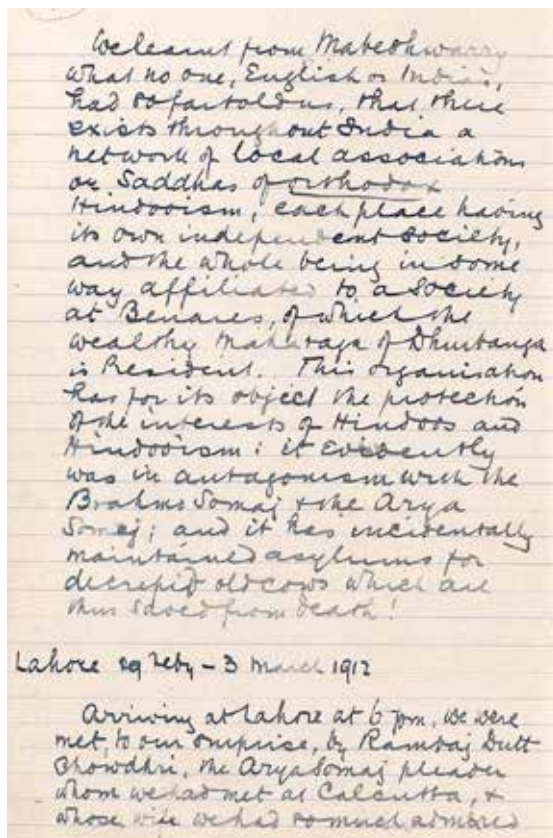 We learnt from Maheshwarry
what no one, English or Indian,
had so far told us, that there
exists throughout India a
network of local associations
or Saddhas of orthodox
Hindooism, each place having
its own independent society,
and the whole being in some
way affiliated to a Society
at Benares, of which the
wealthy Maharaja of Dhurbanga
is President. This organisation
has for its object the protection
of the interests of Hindoos and
Hindooism: it evidently
was in antagonism with the
Brahmo Somaj & the Arya
Somaj; and it has incidentally
maintained asylums for
decrepid old cows which are
thus saved from death!
Lahore 29 Feby - 3 March 1912
Arriving at Lahore at 6 pm, we were
met, to our surprise, by Rambaj Dutt
Chowdhri, the Arya Somaj pleader
whom we had met at Calcutta, &
whose wife we had so much admired